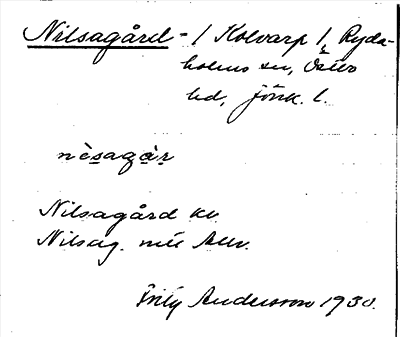 Nilsagård - / Kolvarp 1, Ryda-
holms sn, Östbo
hd, Jönk. l.
nèsagàr
Nilsagård
Nilsag.
Andersson 1930.